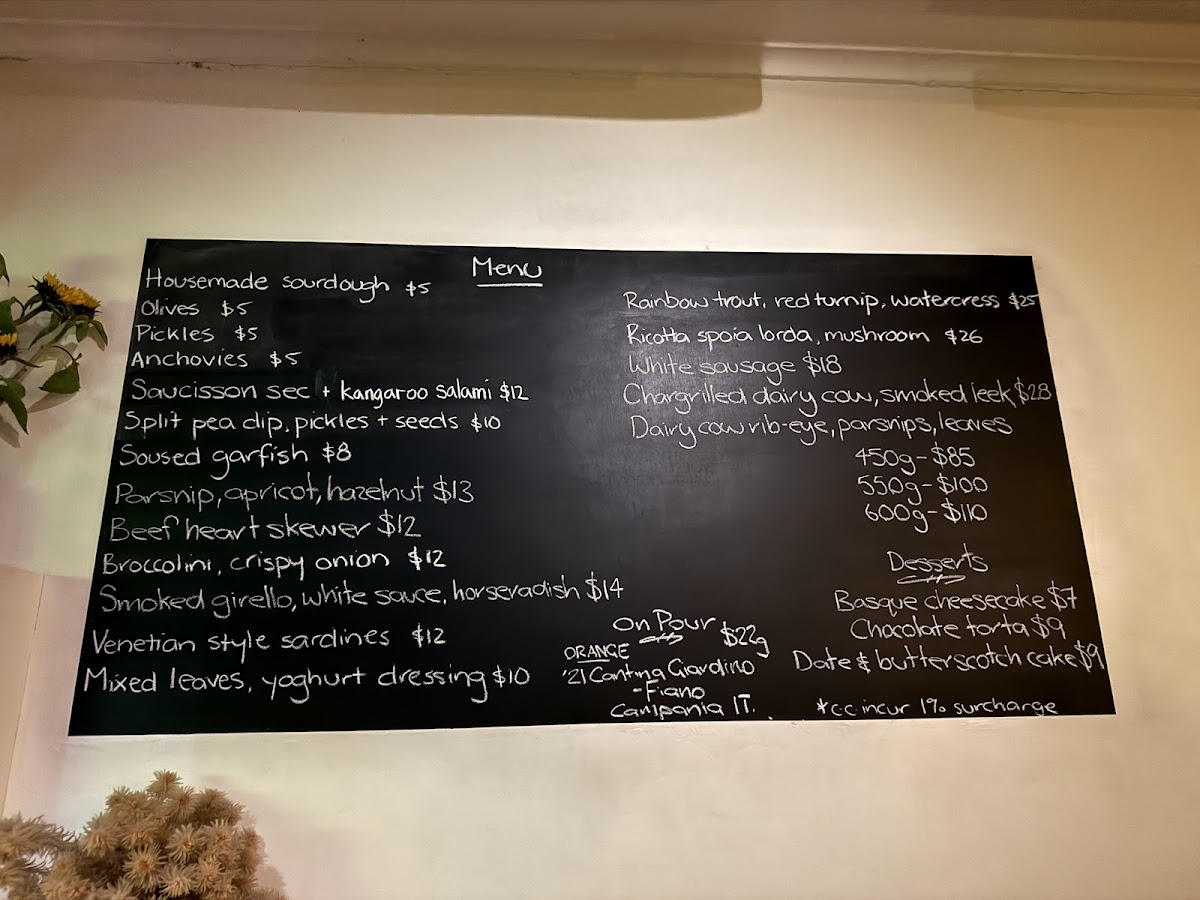 Menu
Housemade sourdough $5
Olives $5
Pickles $5
Anchovies $5
Saucisson sec + kangaroo salami $12
Split pea dip, pickles + seeds $10
Soused garfish $8
Parsnip, apricot, hazelnut $13
Beef heart skewer $12
Broccolini, crispy onion $12
Smoked girello, white sauce, horseradish $14
Venetian style sardines $12
Mixed leaves, yoghurt dressing $10
Rainbow trout, red turnip, watercress $25
Ricotta spoia lorda, mushroom $26
White sausage $18
Chargrilled dairy cow, smoked leek $28
Dairy cow rib-eye, parsnips, leaves
450g - $85
550g - $100
600g - $110
Desserts
Basque cheesecake $7
Chocolate torta $9
Date & butterscotch cake $9
*c.c incur 1% surcharge
On Pour
$22g
ORANGE
'21 Cantina Giardino
- Fiano
Campania IT.